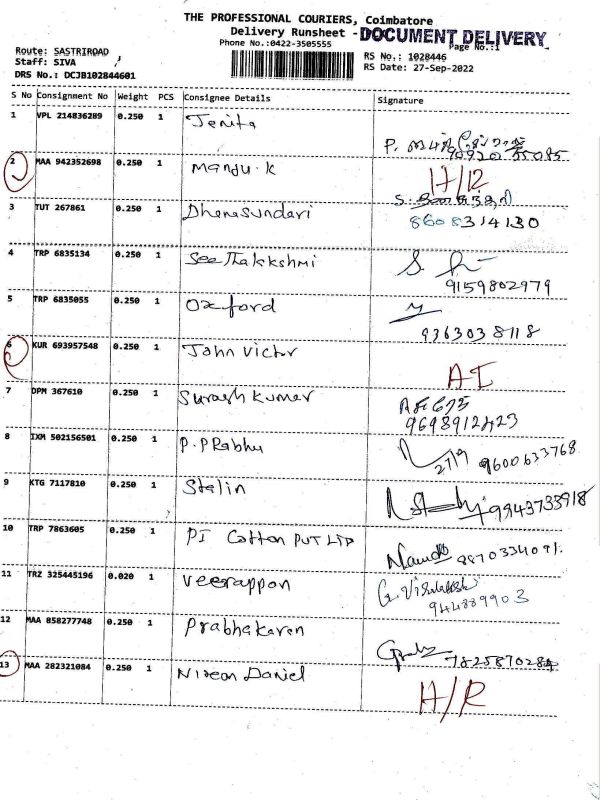 THE PROFESSIONAL COURIERS, Coimbatore
Delivery Runsheet - DOCUMENT DELIVERY
Phone No.:0422-3505555
Page No.:1
Route: SASTRIROAD
Staff: SIVA
DRS No.: DCJB102844601
RS No.: 1028446
RS Date: 27-Sep-2022
S No Consignment No Weight PCS Consignee Details Signature
1 VPL 214836289 0.250 1 Jenita
P.
2 MAA 942352698 0.250 1 Manju.K
3 TUT 267861 0.250 1 Dhanasundari
8608314130
4 TRP 6835134 0.250 1 SeeThalakshmi
9159802979
5 TRP 6835055 0.250 1 Oxford
9363038118
6 KUR 693957548 0.250 1 John Victor
AI
7 DPM 367610 0.250 1 Suresh Kumar
9698912423
8 IXM 502156501 0.250 1 P.PRabhu
27/9 9600633768
9 KTG 7117810 0.250 1 Stalin
9943733918
10 TRP 7863605 0.250 1 PI Cotton PVT LTD
9870334091.
11 TRZ 325445196 0.020 1 Veerappon
944889903
12 MAA 858277748 0.250 1 Prabhakaren
13 MAA 282321084 0.250 1 Daniel
H/R